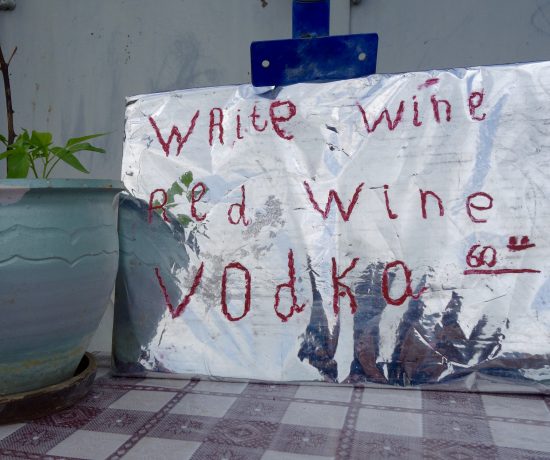 WRite wine
Red wine
vodka 60